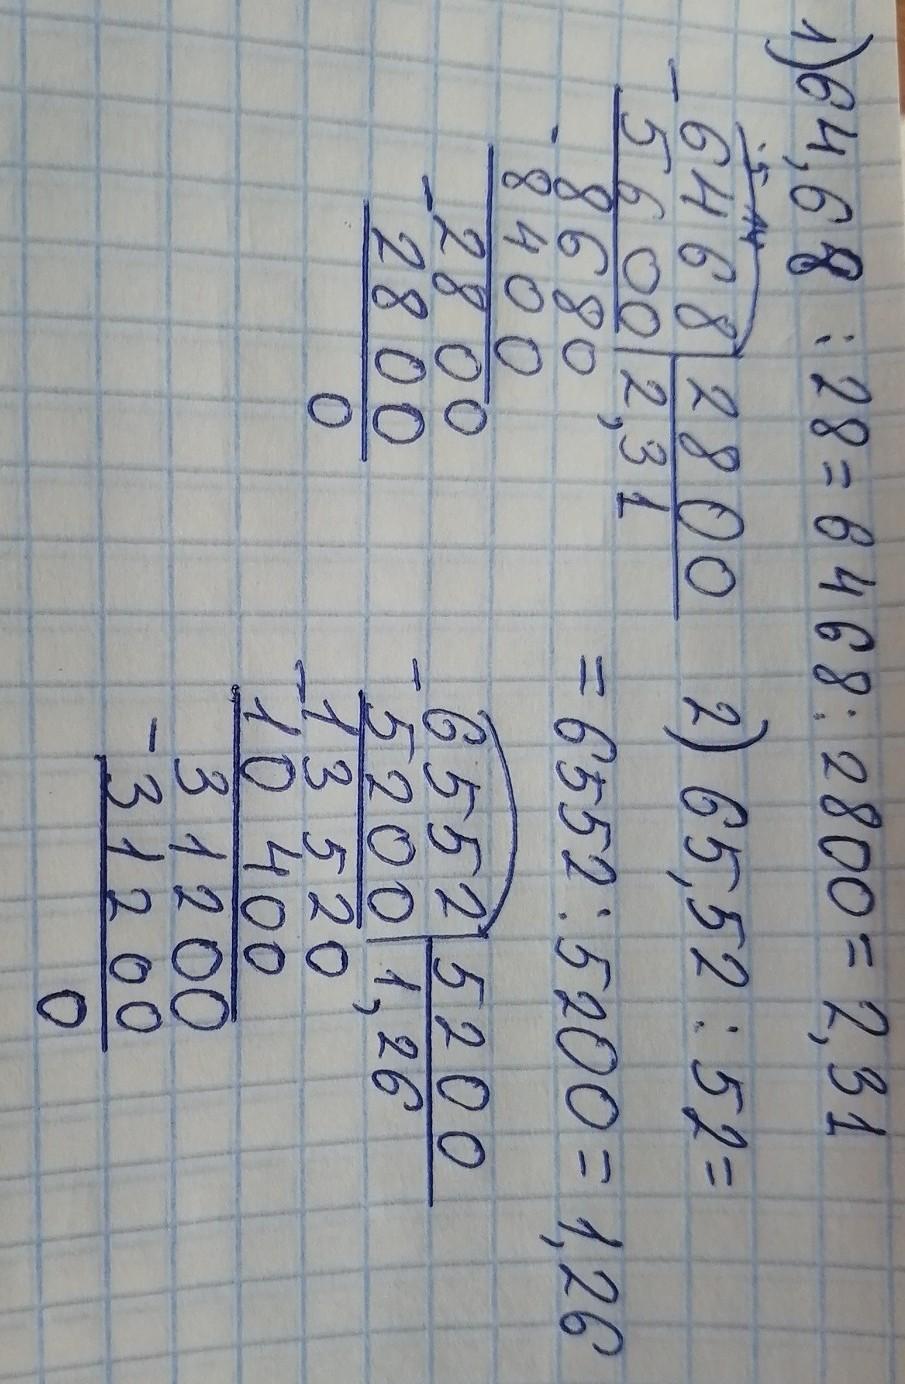 1) 64,68 : 28 = 6468 : 2800 = 2,31
- 6468 | 2800
5600 | 2,31
- 8680
8400
- 2800
2800
0
2) 65,52 : 52 =
= 6552 : 5200 = 1,26
- 6552 | 5200
5200 | 1,26
- 13520
10400
- 31200
31200
0